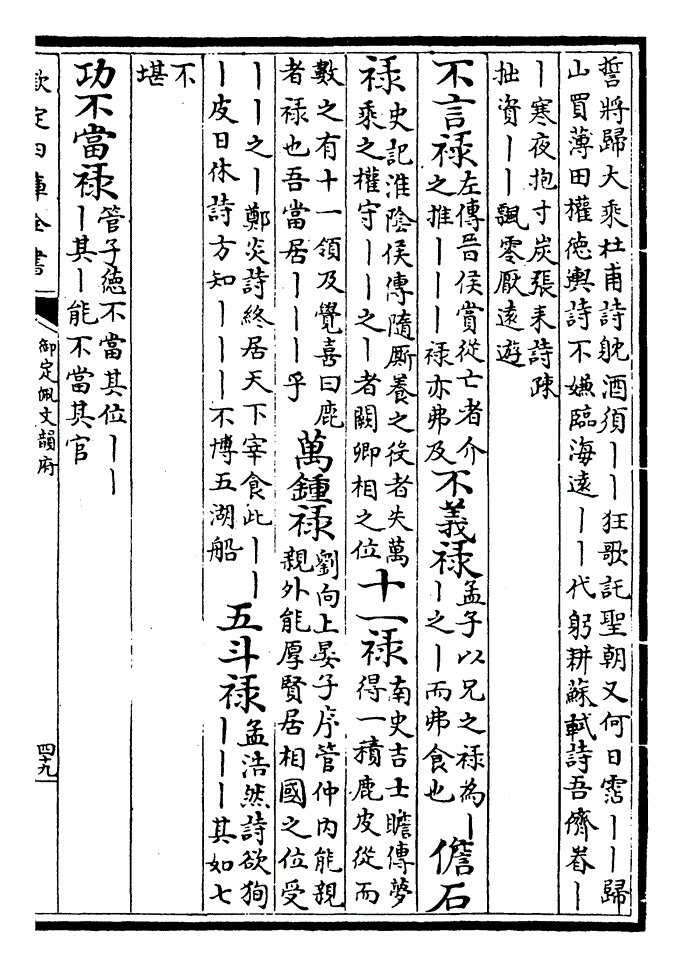 誓將歸大乘杜甫詩躭酒須丨丨狂歌託聖朝又何日霑丨丨歸
山買薄田權徳輿詩不嫌臨海遠丨丨代躬耕蘇軾詩吾儕眷丨
丨寒夜抱寸炭張耒詩疎
拙資丨丨飄零厭遠遊
不言禄左傳晉侯賞從亡者介
之推丨丨丨禄亦弗及
不義禄孟子以兄之禄為丨
丨之丨而弗食也
儋石
禄史記淮隂侯傳隨厮養之役者失萬
乘之權守丨丨之丨者闕卿相之位
十一禄南史吉士瞻傳夢
得一積鹿皮從而
數之有十一領及覺喜曰鹿
者禄也吾當居丨丨丨乎
萬鍾禄劉向上晏子序管仲内能親
親外能厚賢居相國之位受
丨丨之丨鄭炎詩終居天下宰食此丨丨
丨皮日休詩方知丨丨丨不博五湖船
五斗禄孟浩然詩欲狥
丨丨丨其如七
不
堪
功不當禄管子徳不當其位丨丨
丨其丨能不當其官
欽定四庫全書
御定佩文韻府
四十九